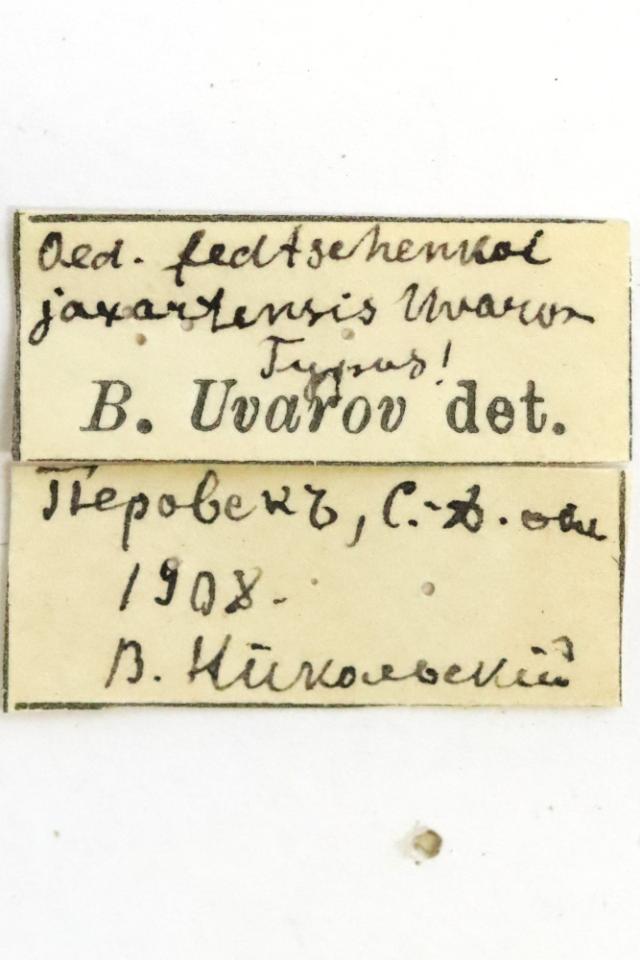 Oed. fedtschenkoi
jaxartensis Uvarov
Typus!
B. Uvarov det.
Перовскъ, С.-Д. обл
1908.
В. Никольскій